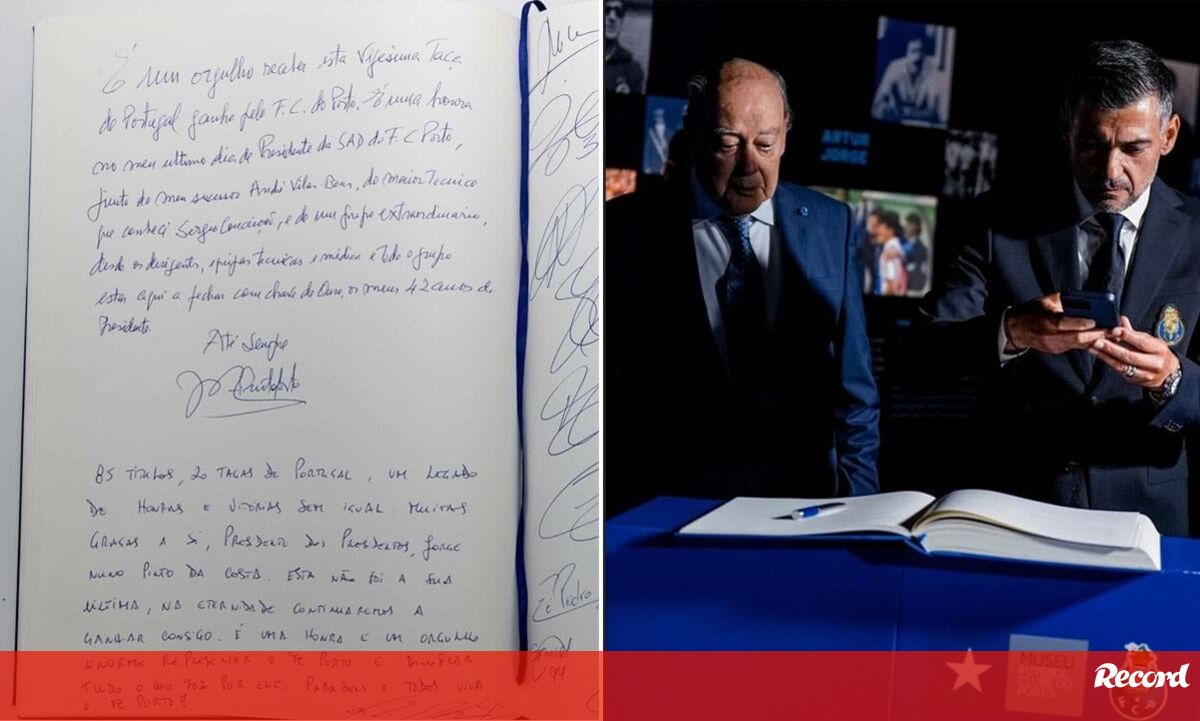 É um orgulho receber esta Vigésima Taça
de Portugal ganha pelo F.C. do Porto. É uma honra
no meu ultimo dia de Presidente da SAD do F.C Porto,
junto do meu sucessor André Vilas Boas, do maior Tecnico
que conheci Sergio Conceição, e de um grupo extraordinario,
desde os dirigentes, equipas tecnicas e médica e todo o grupo
estar aqui a fechar com chave de Ouro, os meus 42 anos de
Presidente.
Até sempre
85 TÍTULOS, 20 TAÇAS DE PORTUGAL, UM LEGADO
DE HONRAS E VITÓRIAS SEM IGUAL. MUITAS
GRAÇAS A SI, PRESIDENTE DOS PRESIDENTES, JORGE
NUNO PINTO DA COSTA. ESTA NÃO FOI A SUA
ÚLTIMA, NA ETERNIDADE CONTINUAREMOS A
GANHAR CONSIGO. É UMA HONRA E UM ORGULHO
ENORME REPRESENTAR O FC PORTO E DIGNIFICAR
TUDO O QUE FEZ POR ELE. PARABÉNS A TODOS. VIVA
O FC PORTO!
Zé Pedro
ARTUR
JORGE
MUSEU
FCP
Record